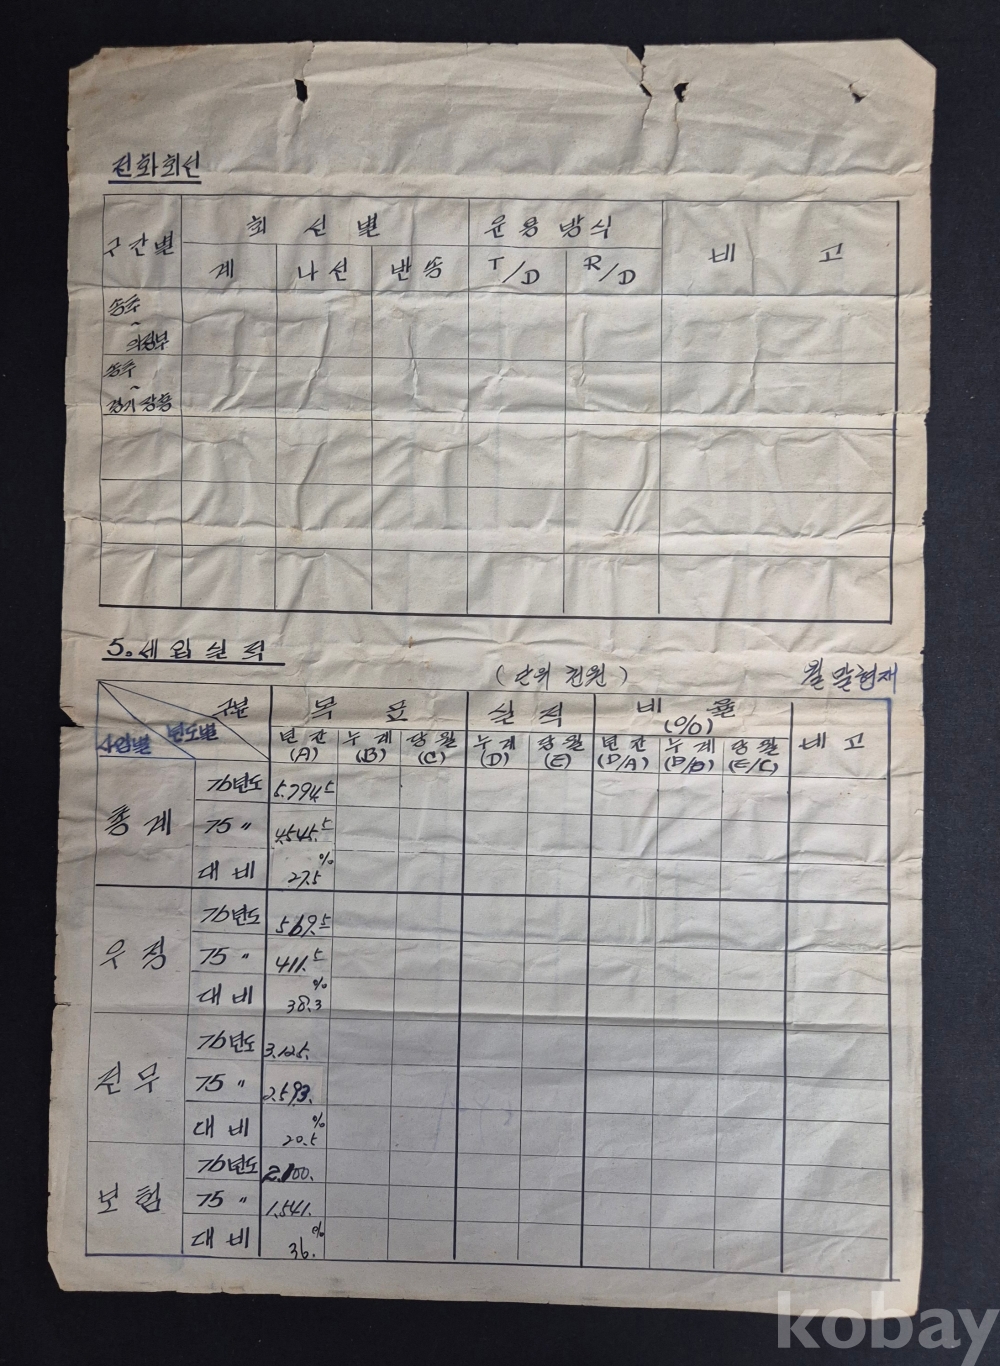 전화회선
구간별 회선별 운용방식 비고
계 나선 반송 T/D R/D
송추
~
의정부
송추
~
경기 장흥
5. 세입실적
(단위 천원) 월말현재
구분 목표 실적 비율 (%) 비고
사업별 년도별 년간 (A) 누계 (B) 당월 (C) 누계 (D) 당월 (E) 년간 (D/A) 누계 (D/B) 당월 (E/C)
총계 76년도 5.794.5
75 〃 4.545.5
대비 27.5 %
우정 76년도 569.5
75 〃 411.5
대비 38.3 %
전무 76년도 3.125.
75 〃 2.593.
대비 20.5 %
보험 76년도 2.100.
75 〃 1.541.
대비 36. %
kobay